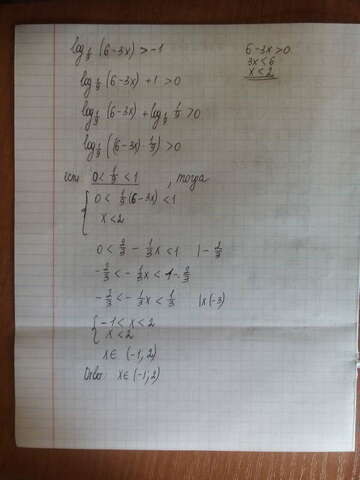 log_{1/9} (6-3x) > -1
6-3x>0
3x<6
x<2
log_{1/9} (6-3x) + 1 > 0
log_{1/9} (6-3x) + log_{1/9} 1/9 > 0
log_{1/9} ((6-3x) · 1/9) > 0
если 0 < 1/9 < 1, тогда
{ 0 < 1/9 (6-3x) < 1
x < 2
0 < 2/3 - 1/3 x < 1 | - 2/3
-2/3 < - 1/3 x < 1 - 2/3
-2/3 < - 1/3 x < 1/3 | x (-3)
{ -1 < x < 2
x < 2
x ∈ (-1; 2)
Ответ: x ∈ (-1; 2)